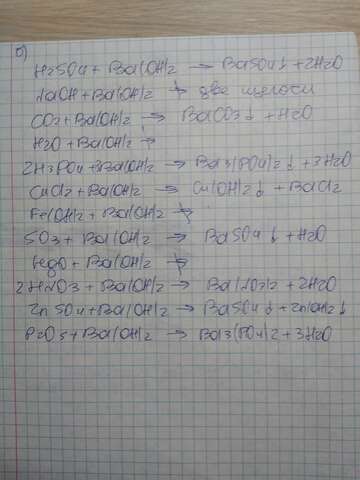 б)
H2SO4 + Ba(OH)2 → BaSO4↓ + 2H2O
NaOH + Ba(OH)2 ↛ две щелочи
CO2 + Ba(OH)2 → BaCO3↓ + H2O
H2O + Ba(OH)2 ↛
2H3PO4 + Ba(OH)2 → Ba3(PO4)2↓ + 3H2O
CuCl2 + Ba(OH)2 → Cu(OH)2↓ + BaCl2
Fe(OH)2 + Ba(OH)2 ↛
SO3 + Ba(OH)2 → BaSO4↓ + H2O
HgO + Ba(OH)2 ↛
2HNO3 + Ba(OH)2 → Ba(NO3)2 + 2H2O
ZnSO4 + Ba(OH)2 → BaSO4↓ + Zn(OH)2↓
P2O5 + Ba(OH)2 → Ba3(PO4)2 + 3H2O